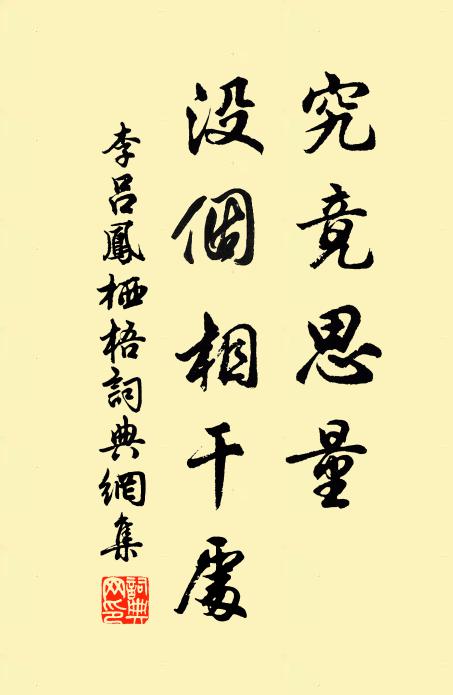 究竟思量
没個相干處
李吕鳳栖梧詞典網集
詞典網印